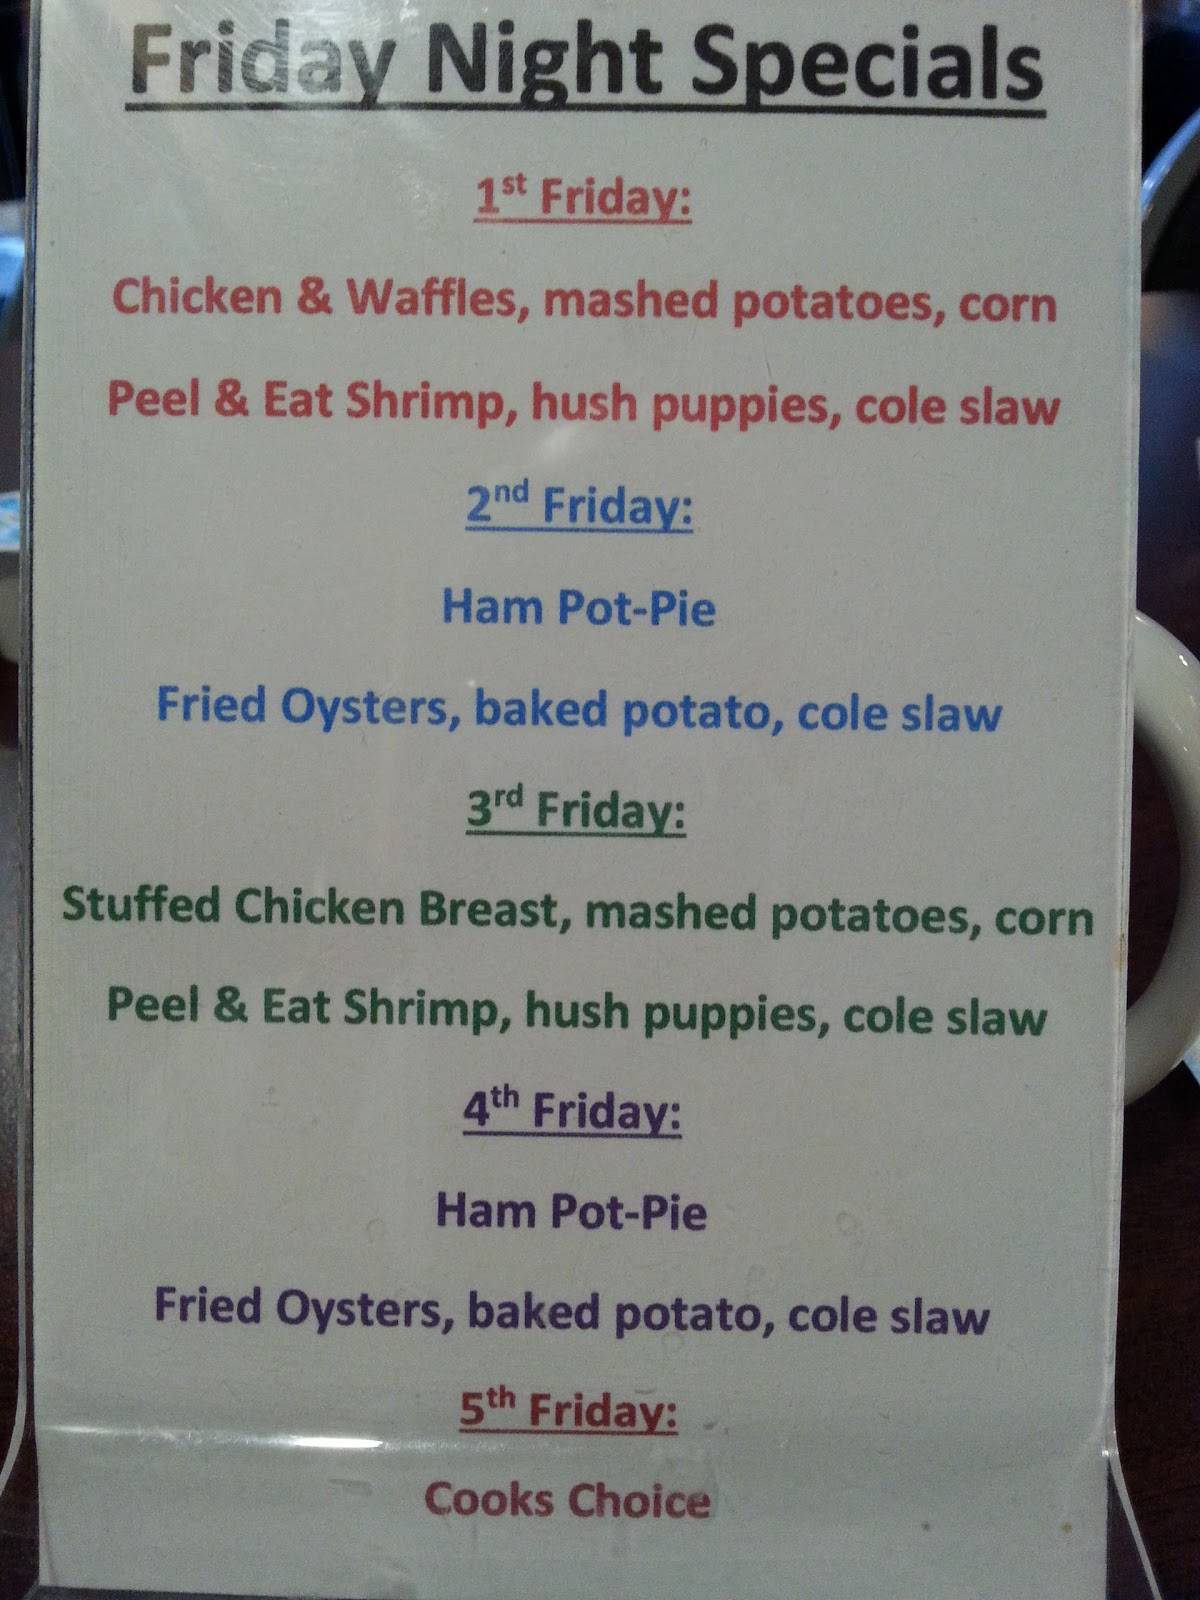 Friday Night Specials
1st Friday:
Chicken & Waffles, mashed potatoes, corn
Peel & Eat Shrimp, hush puppies, cole slaw
2nd Friday:
Ham Pot-Pie
Fried Oysters, baked potato, cole slaw
3rd Friday:
Stuffed Chicken Breast, mashed potatoes, corn
Peel & Eat Shrimp, hush puppies, cole slaw
4th Friday:
Ham Pot-Pie
Fried Oysters, baked potato, cole slaw
5th Friday:
Cooks Choice